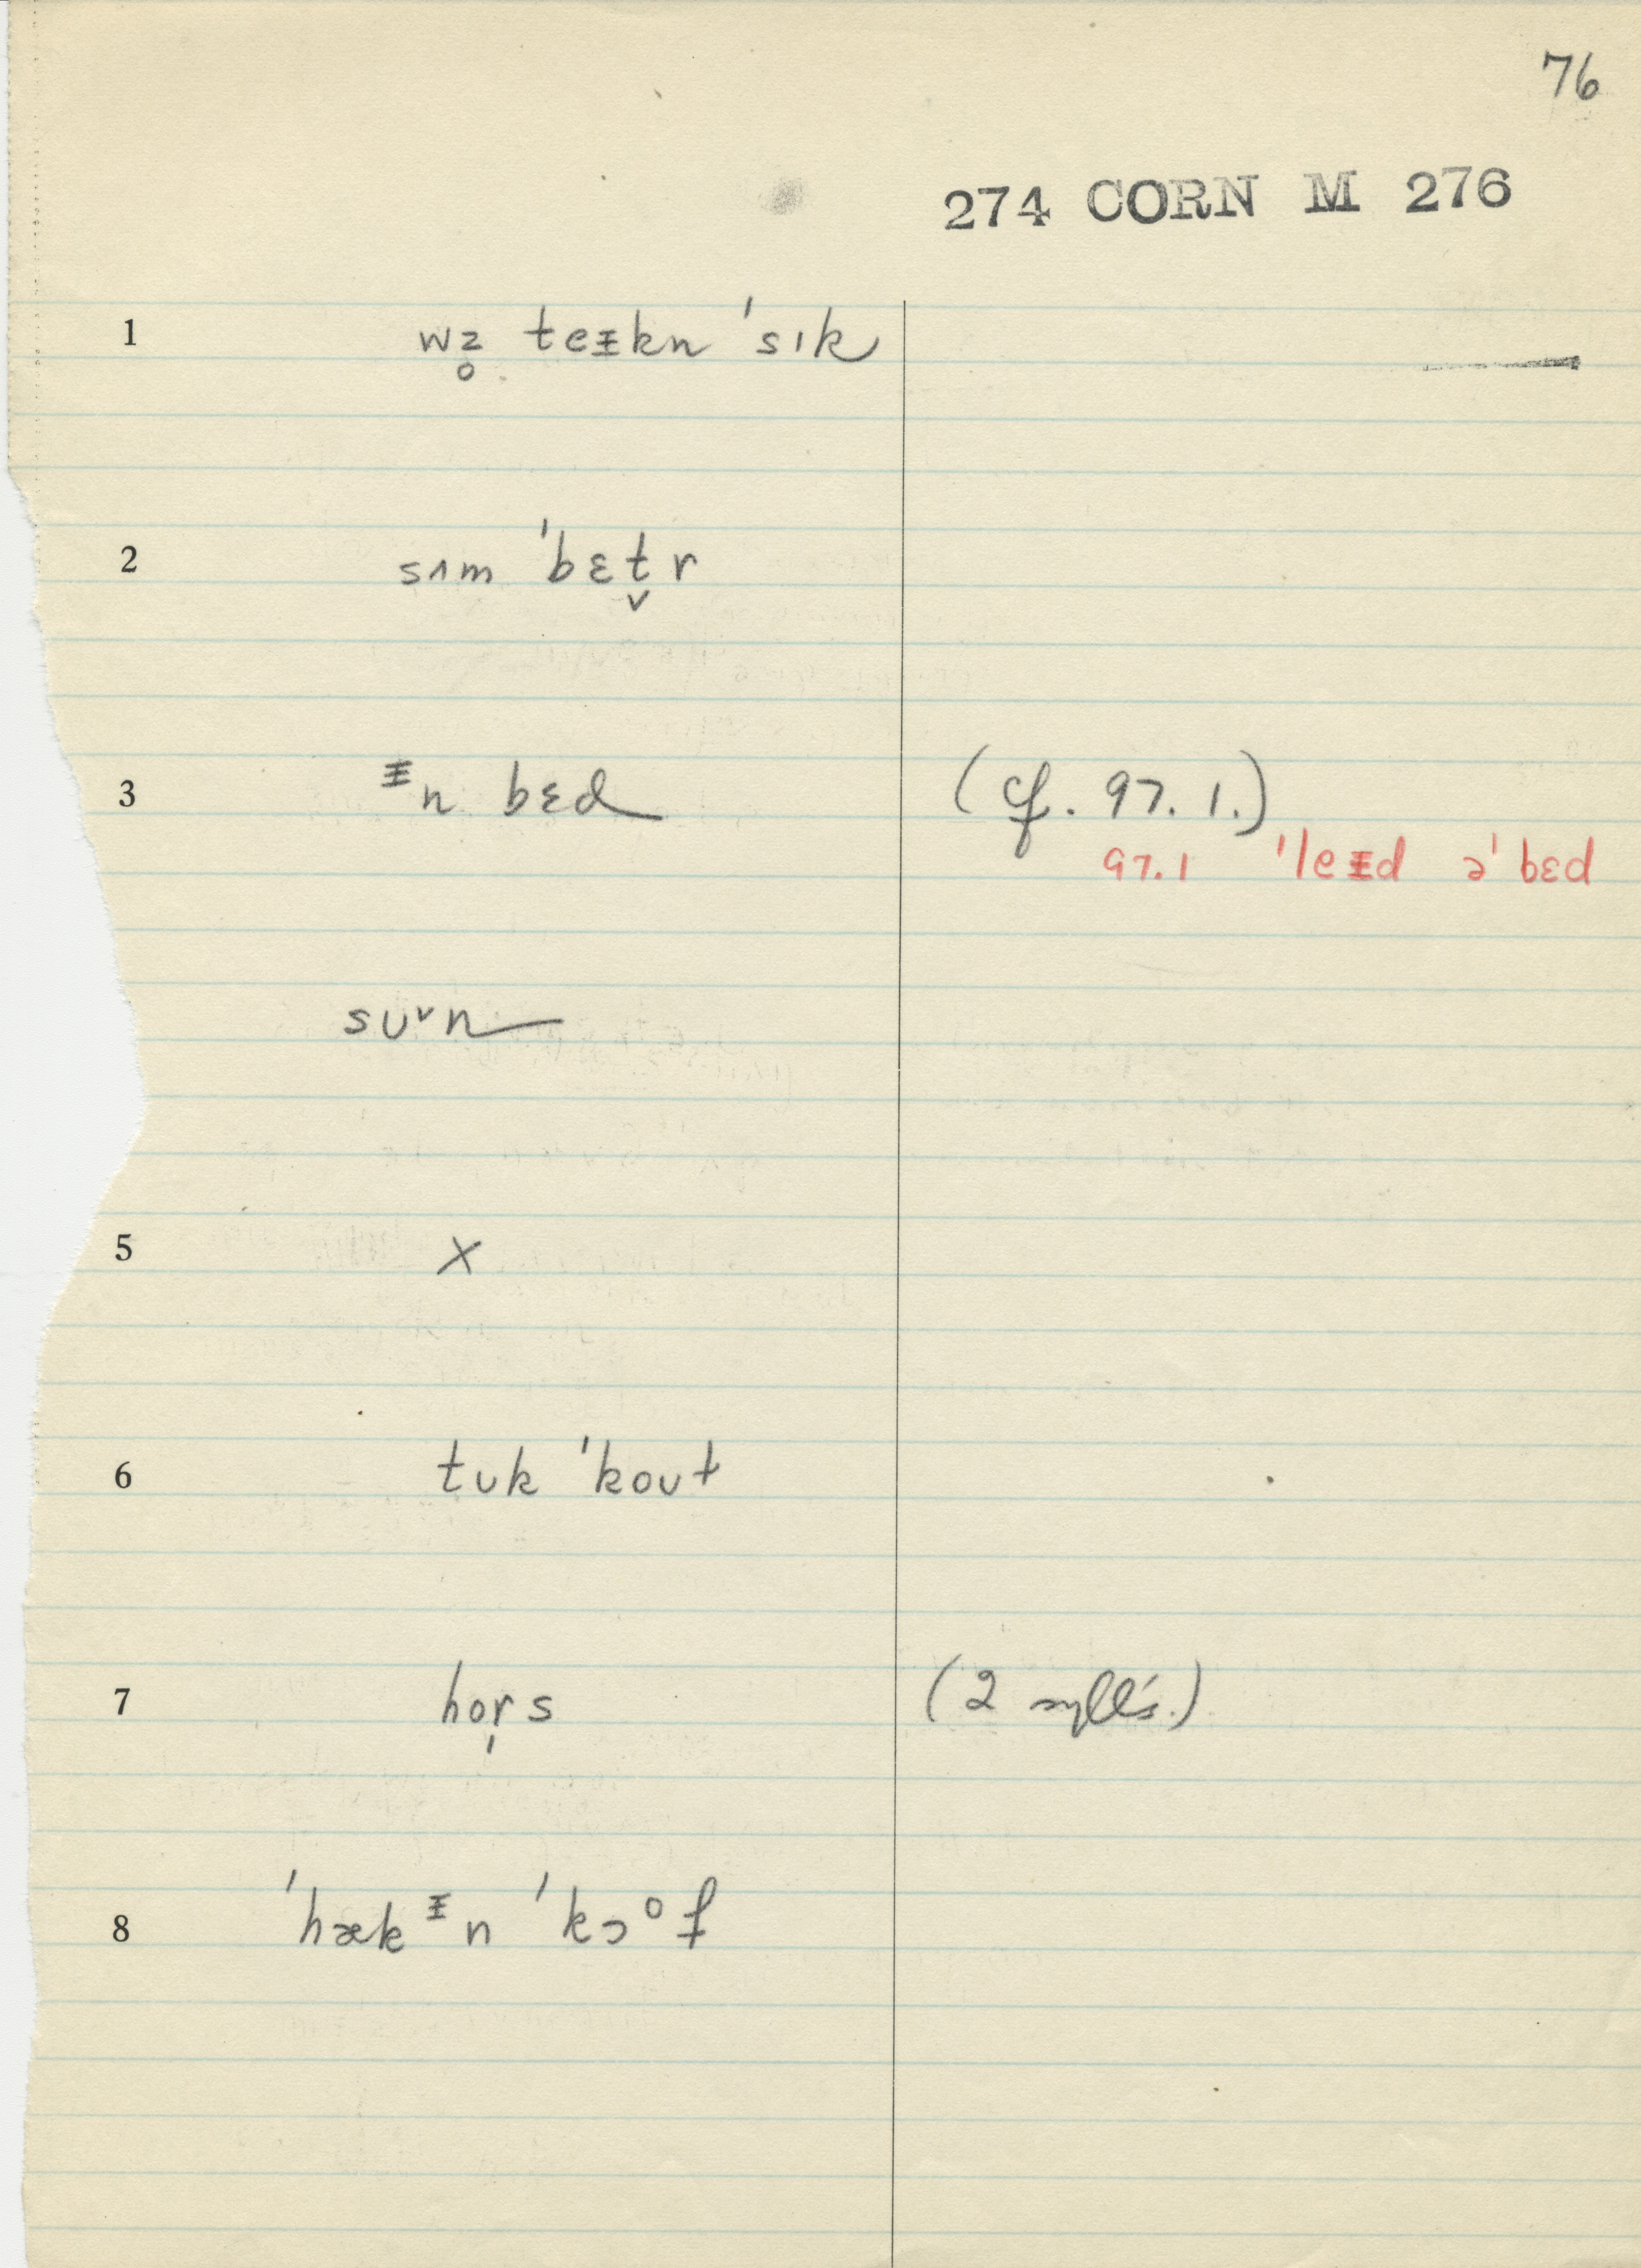 76
274 CORN M 276
1 wz̥ teᵻkn ˈsɪk
2 sʌm ˈbɛt̬r
3 ᵻn bɛd (cf. 97.1.)
97.1 ˈleᵻd əˈbɛd
sᴜᵛn
5 X
6 tᴜk ˈkoᴜt
7 hor̩s (2 sylls.)
8 ˈhækᵻn ˈkɔºf